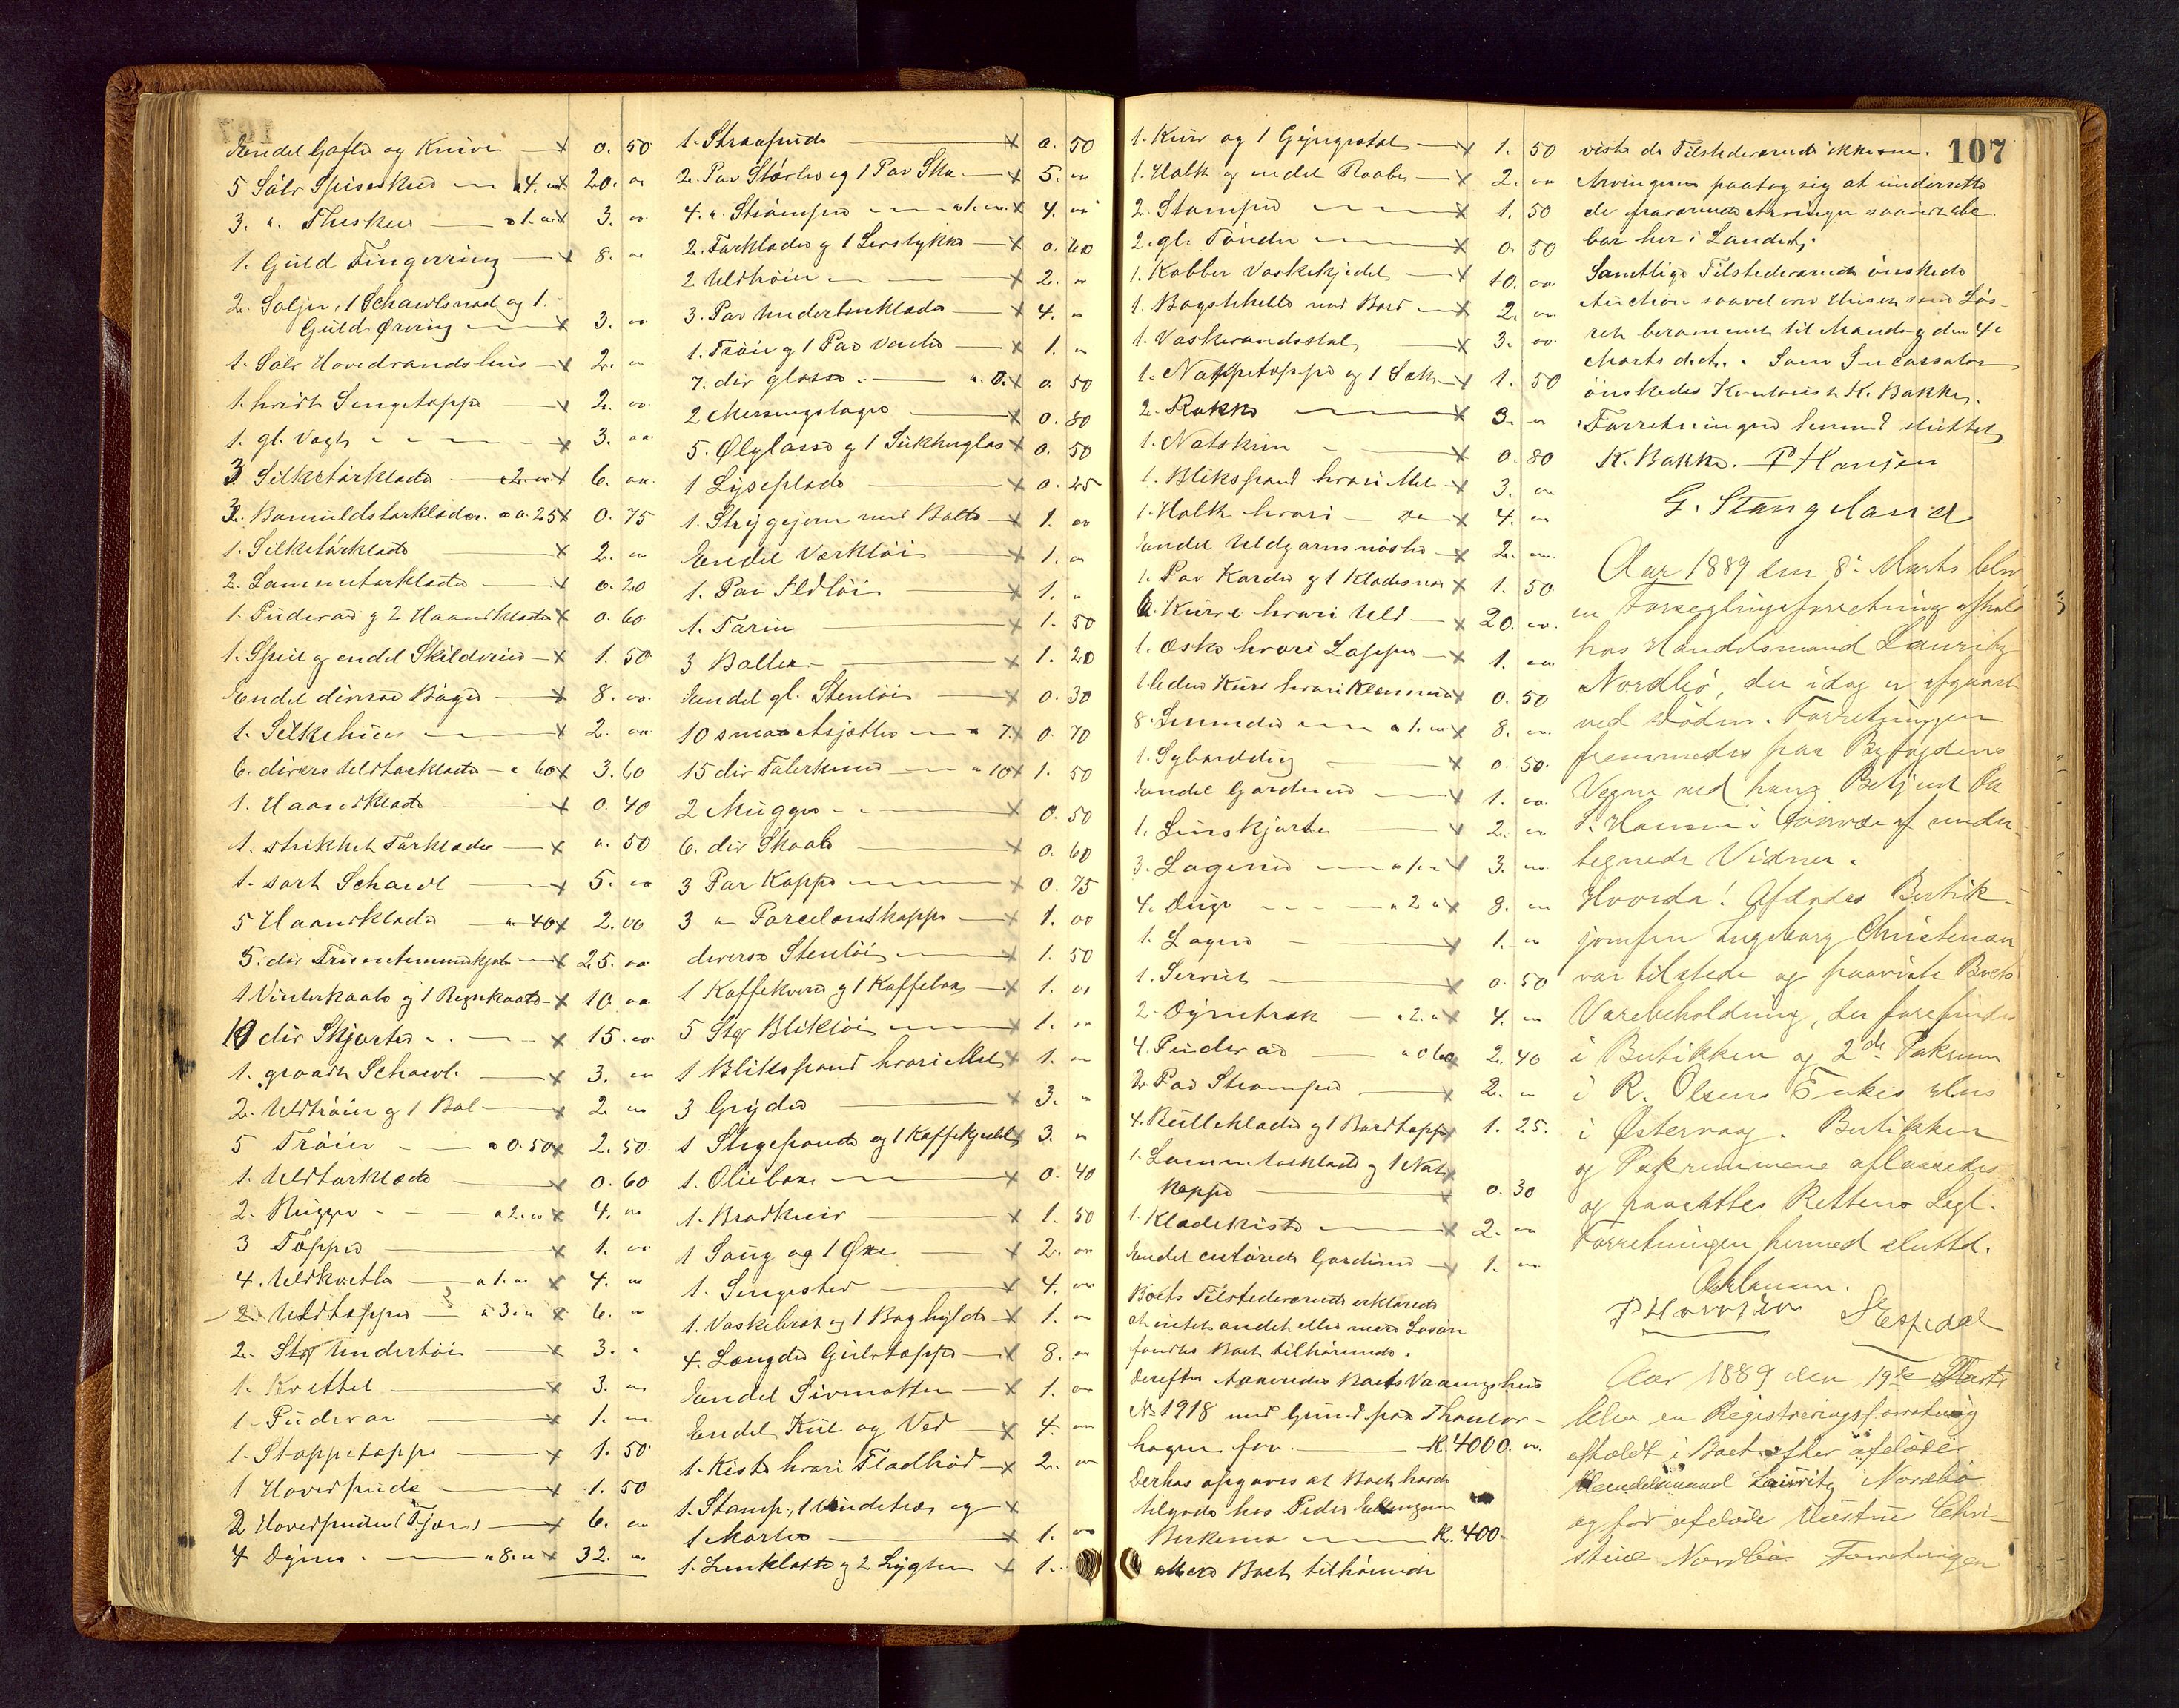 107
Endel Gafler og Knive 0. 50
5 Sölv Spiseskeer a 4. 20. oo
3. Theskeer a 1. 3. oo
1. Guld Fingerring 8.
2. Söljer, 1 Schawlsnaal og 1.
Guld Örering 3. oo
1. Sölv Hovedvandshus 2.
1. hvidt Sengetæppe 2. oo
1. gl. Vægt 3. oo
3 Silketörklæder a 2. 6. oo
3. Bomuldstörklæder a 0.25 0. 75
1. Silketörklæde 2.
2. Lommetörklæder 0. 20
1. Pudevar og 2 Haandklæder 0. 60
1. Speil og endel Skilderier 1. 50
Endel diverse Böger 8. oo
1. Silkehue 2. oo
6. divers Uldtörklæder a 60 3. 60
1. Haandklæde 0. 40
1. strikket Törklæde 0. 50
1. sort Schawl 5. oo
5 Haandklæder a 40 2. 00
5. div Fruentimmerkjoler 25. oo
1 Vinterkaabe og 1 Regnkaabe 10. oo
10 div Skjorter 15. oo
1. graat Schawl 3. oo
2. Uldtröier og 1 2.
5 Tröier a 0.50 2. 50
1. Uldtörklæde 0. 60
2. Rugger a 2. 4. oo
3 Tæpper 1. oo
4. Uldkvitler a 1. 4.
2. Uldtæpper a 3. 6.
2. Stk Undertöi 3.
1. Kvittel 3.
1. Pudevar 1.
1. Stoppetæppe 1. 50
1 Hovedpude 1. 50
2 Hovedpuder (Fjær) 6.
4 Dyner a 8. 32.
1. Straapude 0. 50
2. Par Stövler og 1 Par Sko 5.
4. Strömper a 1. 4. oo
2. Forklæder og 1 Livstykke 0. 60
2 Uldtröier 2.
3. Par Underbenklæder 4.
1. Tröie og 1 Par Vanter 1.
7. div glasse 0. 50
2 Messingstager 0. 80
5. Ölglasse og 1 Sukkerglas 0. 50
1 Lyseplade 0. 25
1. Strygejern med Bolte 1. oo
Endel Værktöi 1.
1. Par Ildtöi 1.
1. Tærin 1. 50
3 Baller 1. 20
Endel gl. Stentöi 0. 30
10 smaa Asjetter a 7 0. 70
15 div Tallerkener a 10 1. 50
2 Mugger 0. 50
6. div Skaale 0. 60
3 Par Kopper 0. 75
3 Porcelænskopper 1. 00
diverse Stentöi 1. 50
1 Kaffekvern og 1 Kaffebox 1.
5 Stk Bliktöi 1.
1 Blikspand hvori Mel 1.
3 Gryder 3.
1 Stegepande og 1 Kaffekjedel 3.
1. Oliebox 0. 40
1. Brödkniv 1. 50
1 Saug og 1 Öxe 2.
1. Sengested 4.
1. Vaskebræt og 1 Boghylde 1.
4. Længder Gulvtæppe 8.
Endel Sivmatter 1.
Endel Kul og Ved 4.
1. Kiste hvori Fladbröd 2.
1. Stamp, 1 Vindetræ og
1 Morter 1.
1. Zinkbötte og 2 Lygter 1.
1. Kurv og 1 Gyngestol 1. 50
1. Holk og endel 2. oo
2. Stamper 1. 50
2. gl. Tönder 0. 50
1. Kobber Vaskekjedel 10. oo
1. Bagstehelle med Bord 2.
1. Vaskevandsstol 3. oo
1. Nappetæppe og 1 Sæk 1. 50
2. Rokke 3.
1. Natskrin 0. 80
1. Blikspand hvori Mel 3.
1. Holk hvori 4.
Endel Uldgarnsnöster 2.
1. Par Karder og 1 Klædesnor 1. 50
6. Kurve hvori Uld 20.
1. Æske hvori Lapper 1.
1 liden Kurv hvori Klemmer 0. 50
8. a 1. 8.
1. 0. 50
Endel Gardiner 1. oo
1. Linskjorte 2.
3. Lagener a 1. 3.
4. Duge a 2 8.
1. Lagen 1.
1. Serviet 0. 50
2. Dynetræk a 2. 4.
4. Pudevar a 0.60 2. 40
2. Par Strömper 2.
4. Rulleklæder og 1 Bordtæppe 1. 25.
1. Lommetörklæde og 1 Nat-
kappe 0. 30
1. Klædekiste 2.
Endel couleurede Gardiner 1.
Boets Tilstedeværende erklærede
at intet andet eller mere Lösöre
fandtes Boet tilhörende.
Derefter Boets Vaaningshus
No 1918 med Grund paa
hagen for K. 4000.
Derhos opgaves at Boet havde
tilgode hos Peder
K. 400.
Mere Boet tilhörende
viste de Tilstedeværende ikke om.
Arvingerne paatog sig at underrette
de fraværende Arvinger
her i Landet.
Samtlige Tilstedeværende önskede
Auction saavel over Huset som Lös-
öret berammet til Mandag den 4e
Marts d.A. Som Incassator
önskedes Kontorist K. Bakke.
Forretningen hermed sluttet
K. Bakke. P Hansen
G. Stangeland
Aar 1889 den 8. Marts blev
en Forseglingsforretning afholdt
hos Handelsmand Lauritz
Nordbö, der idag er afgaaet
ved Döden. Forretningen
fremmedes paa Byfogdens
Vegne ved hans Betjent
Hansen i Overvær af under-
tegnede Vidner.
Hvorda! Afdödes Butik-
jomfru Ingeborg Christensen
var tilstede og paaviste Boets
Varebeholdning, der forefindes
i Butikken og 2de Pakrum
i R. Olsens Enkes Hus
i Östervaag. Butikken
og Pakrummene aflaasedes
og paasattes Rettens Segl.
Forretningen hermed sluttet.
P Hansen S Espedal
Aar 1889 den 19de Marts
blev en Registreringsforretning
afholdt i Boet efter afdöde
Handelsmand Lauritz Nordbö
og för afdöde Hustru Chri-
stine Nordbö. Forretningen